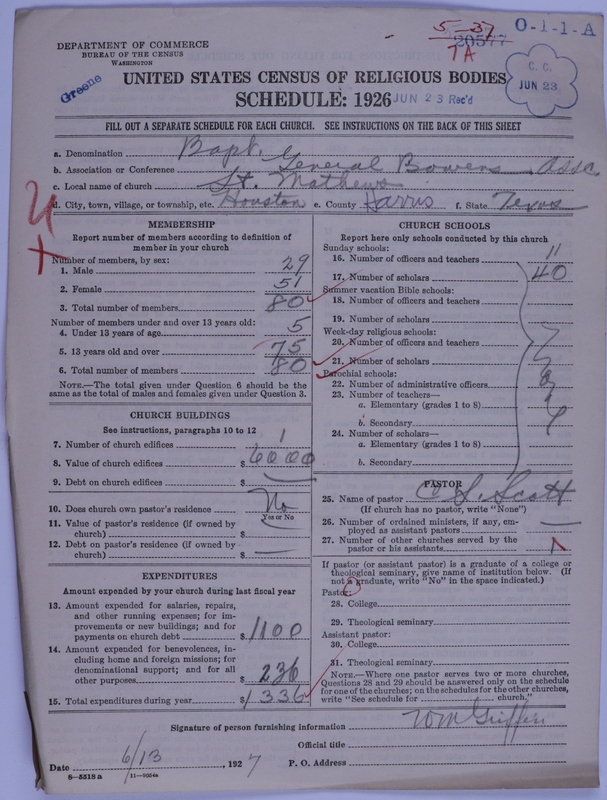 5-37
O-1-1-A
20577
TA
DEPARTMENT OF COMMERCE
BUREAU OF THE CENSUS
WASHINGTON
Greene
C. C.
JUN 23
UNITED STATES CENSUS OF RELIGIOUS BODIES
SCHEDULE: 1926
JUN 23 Rec'd
FILL OUT A SEPARATE SCHEDULE FOR EACH CHURCH. SEE INSTRUCTIONS ON THE BACK OF THIS SHEET
a. Denomination Bapt.
b. Association or Conference General Bowens Assc.
c. Local name of church St. Mathews
d. City, town, village, or township, etc. Houston e. County Harris f. State Texas
MEMBERSHIP
Report number of members according to definition of
member in your church
Number of members, by sex:
1. Male 29
2. Female 51
3. Total number of members 80
Number of members under and over 13 years old:
4. Under 13 years of age 5
5. 13 years old and over 75
6. Total number of members 80
NOTE.—The total given under Question 6 should be
same as the total of males and females given under Question 3.
CHURCH BUILDINGS
See instructions, paragraphs 10 to 12
7. Number of church edifices 1
8. Value of church edifices $ 6000
9. Debt on church edifices $
10. Does church own pastor's residence No
Yes or No
11. Value of pastor's residence (if owned by
church) $
12. Debt on pastor's residence (if owned by
church) $
EXPENDITURES
Amount expended by your church during last fiscal year
13. Amount expended for salaries, repairs,
and other running expenses; for im-
provements or new buildings; and for
payments on church debt $ 1100
14. Amount expended for benevolences, in-
cluding home and foreign missions; for
denominational support; and for all
other purposes $ 236
15. Total expenditures during year $ 1336
CHURCH SCHOOLS
Report here only schools conducted by this church
Sunday schools:
16. Number of officers and teachers 11
17. Number of scholars 40
Summer vacation Bible schools:
18. Number of officers and teachers
19. Number of scholars
Week-day religious schools:
20. Number of officers and teachers
21. Number of scholars
Parochial schools:
22. Number of administrative officers
23. Number of teachers—
a. Elementary (grades 1 to 8)
b. Secondary
24. Number of scholars—
a. Elementary (grades 1 to 8)
b. Secondary
PASTOR
25. Name of pastor C S. Scott
(If church has no pastor, write "None")
26. Number of ordained ministers, if any, em-
ployed as assistant pastors
27. Number of other churches served by the
pastor or his assistants
If pastor (or assistant pastor) is a graduate of a college or
theological seminary, give name of institution below. (If
not a graduate, write "No" in the space indicated.)
Pastor:
28. College
29. Theological seminary
Assistant pastor:
30. College
31. Theological seminary
NOTE.—Where one pastor serves two or more churches,
Questions 28 and 29 should be answered only on the schedule
for one of the churches; on the schedules for the other churches,
write "See schedule for church."
Signature of person furnishing information Wm Griffin
Official title
Date 6/13, 1927 P. O. Address
8—5518 a 11—9054a